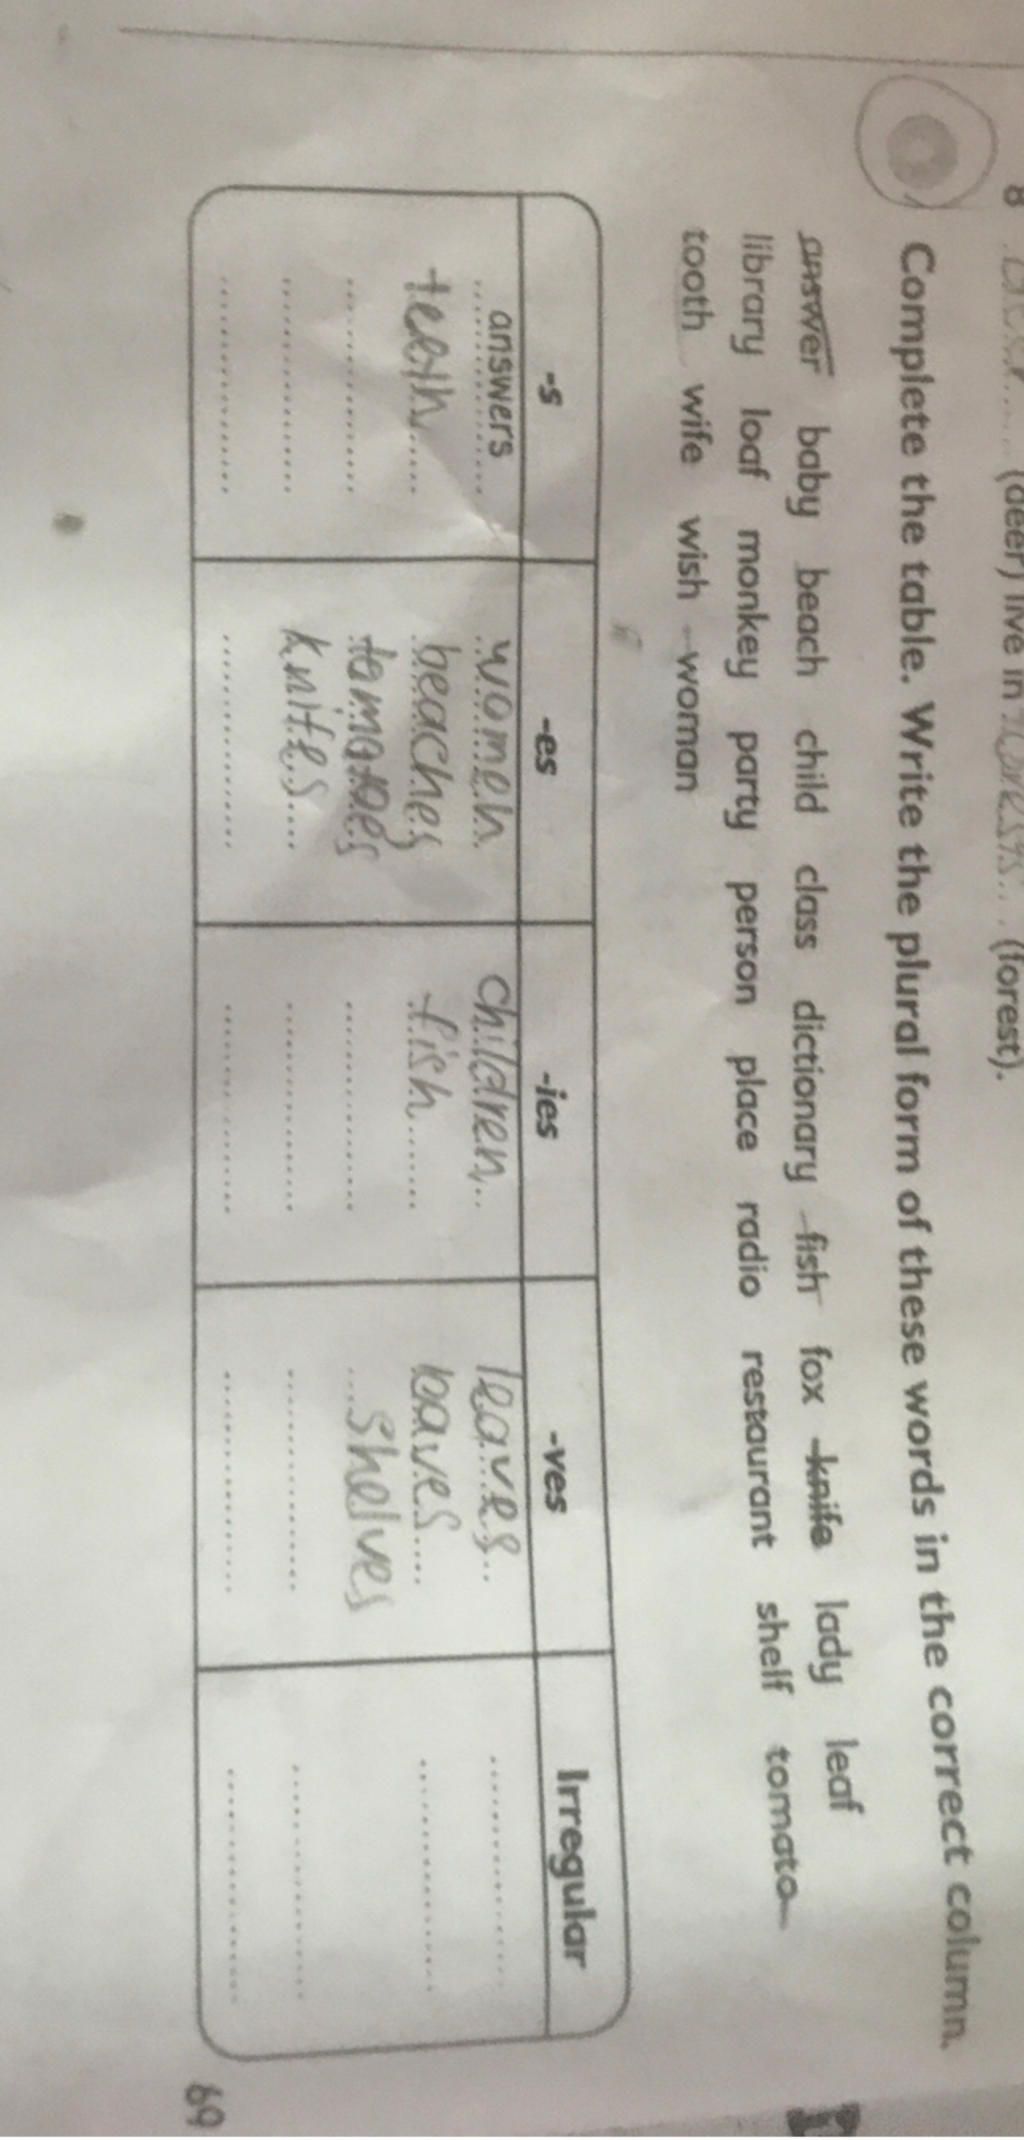 8 (deer) live in forests (forest).
Complete the table. Write the plural form of these words in the correct column.
answer baby beach child class dictionary fish fox knife lady leaf
library loaf monkey party person place radio restaurant shelf tomato
tooth wife wish woman
-s -es -ies -ves Irregular
answers women children leaves
teeth beaches fish loaves
tomatoes shelves
knifes
69